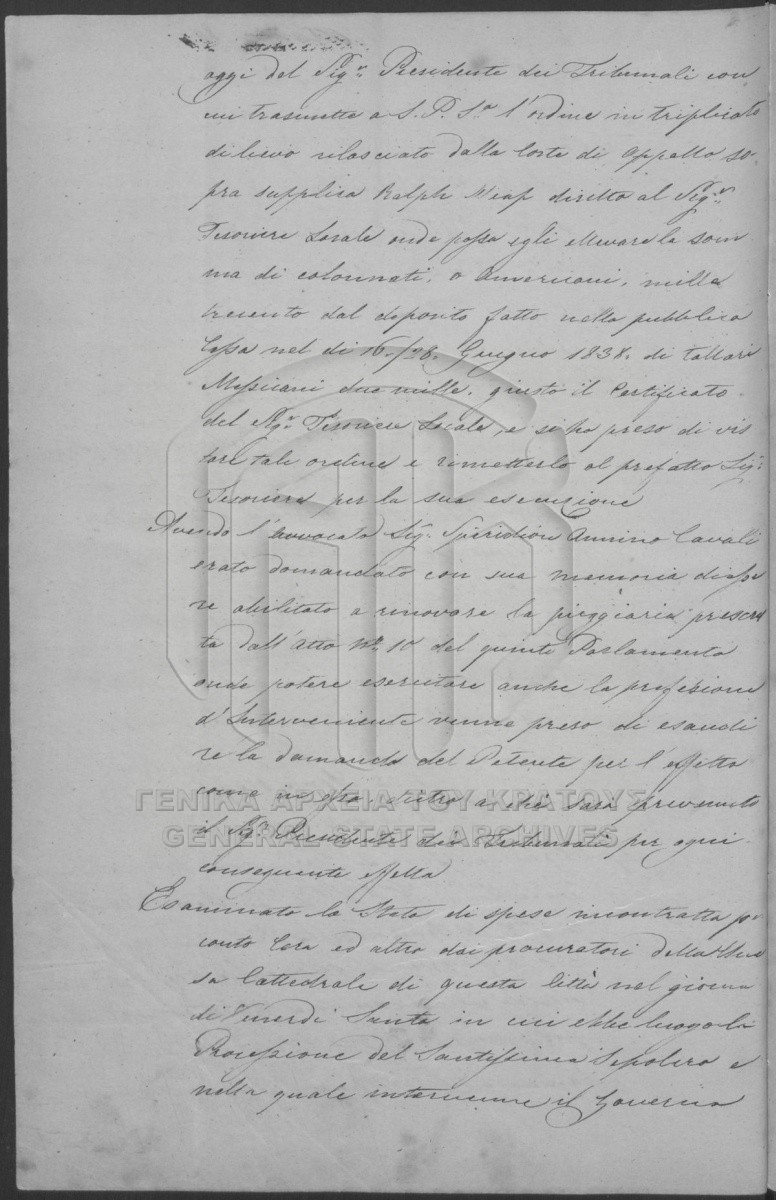 oggi del Sigr. Presidente dei Tribunali con
cui trasmette a S. P. Sa l'ordine in triplicato
di lievo rilasciato dalla Corte di Appello so-
pra supplica Ralph diretto al Sigr.
Tesoriere Locale onde possa egli ellevare la som
ma di colonnati, o Americani, mille
trecento dal deposito fatto nella pubblica
Cassa nel dì 16./28. Giugno 1838. di tallari
Messicani due mille, giusto il Certificato
del Sigr. Tesoriere Locale, e si ha preso di vis
tare tale ordine e rimetterlo al prefatto Sigr.
Tesoriere per la sua esecuzione
Avendo l'avvocato Sigr. Spiridion Annino Cavalli
erato domandato con sua memoria d'esse
re abilitato a rinovare la pieggiaria prescrit
ta dall'Atto No. 10 del quinto Parlamento
onde potere esercitare anche la professione
d'Interveniente venne preso di esaudi
re la domanda del Petente per l'effetto
come in essa, oltre a che sarà prevenuto
il Sigr. Presidente dei Tribunali per ogni
conseguente effetto
Esaminato lo Stato di spese incontratta per
conto Cera ed altro dai procuratori della Chie
sa Cattedrale di questa Città nel giorno
di Venerdì Santo in cui ebbe luogo la
Processione del Santissimo Sepolcro e
nella quale intervenne il Governo
ΓΕΝΙΚΑ ΑΡΧΕΙΑ ΤΟΥ ΚΡΑΤΟΥΣ
GENERAL STATE ARCHIVES